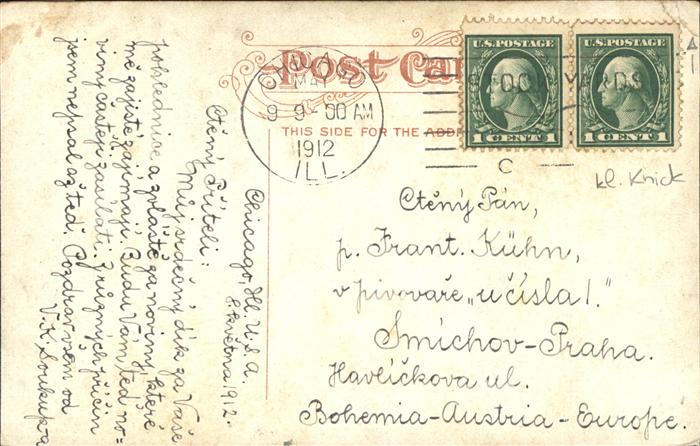 Post Card
THIS SIDE FOR THE ADDR
CHICAGO
MAY
9 9-00 AM
1912
ILL.
STOCK YARDS
C
U.S. POSTAGE
1 CENT 1
U.S. POSTAGE
1 CENT 1
kl. Knick
Ctěný Pán,
p. Frant. Kühn,
v pivovaře „u čísla 1."
Smíchov-Praha.
Havlíčkova ul.
Bohemia-Austria-Europe.
Chicago, Ill. U.S.A.
8 května 1912.
Ctěný Příteli:
Můj srdečný dík za Vaše
pohlednice a zvláště za noviny, které
mě zajisté zajímají. Budu Vám teď no-
viny častěji zasílati. Z různých příčin
jsem nepsal až teď. Pozdrav všem od
V. K. Soukupa